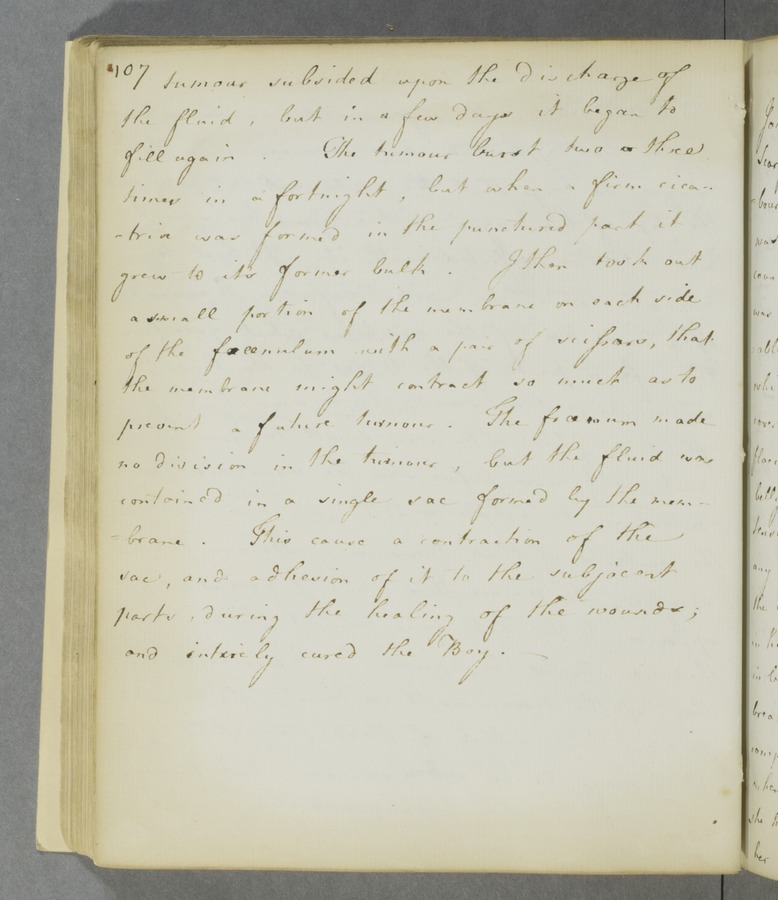 107 tumour subsided upon the discharge of
the fluid, but in a few days it began to
fill again. The tumour burst two or three
times in a fortnight, but when a firm cica-
-trix was formed in the punctured part it
grew to its former bulk. I then took out
a small portion of the membrane on each side
of the frœnulum with a pair of scissars, that
the membrane might contract so much as to
prevent a future tumour. The frœnum made
no division in the tumour, but the fluid was
contained in a single sac formed by the mem-
-brane. This cause a contraction of the
sac, and adhesion of it to the subjacent
parts, during the healing of the wounds;
and intirely cured the Boy. —